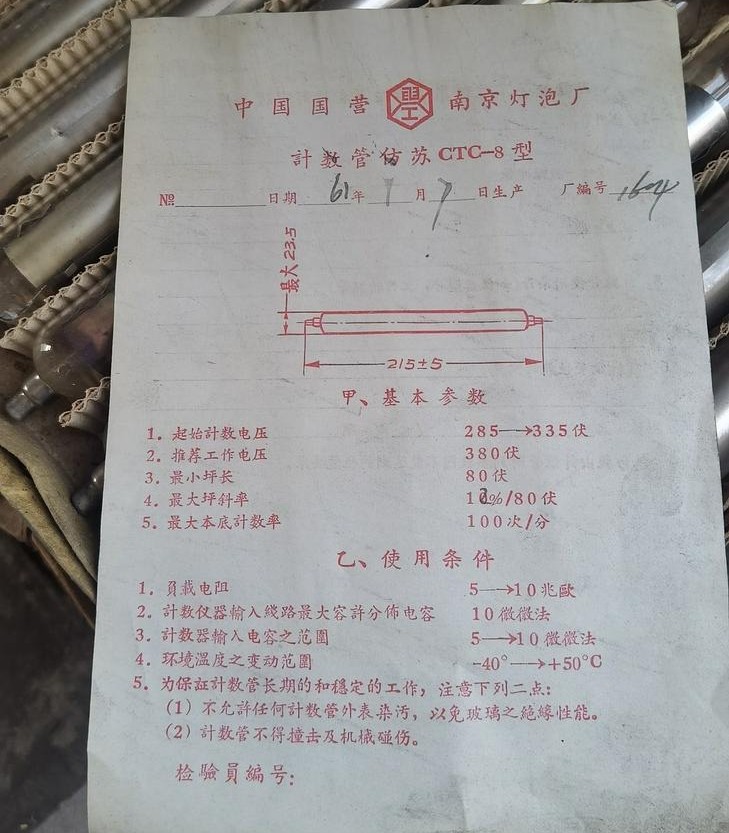 中国国营 南京灯泡厂
計数管仿苏CTC-8型
№ 日期 61年 1月 7日生产 厂編号 1604
最大 23.5
215±5
甲、基本参数
1. 起始計数电压 285→335伏
2. 推荐工作电压 380伏
3. 最小坪长 80伏
4. 最大坪斜率 12%/80伏
5. 最大本底計数率 100次/分
乙、使用条件
1. 負載电阻 5→10兆歐
2. 計数仪器輸入綫路最大容許分佈电容 10微微法
3. 計数器輸入电容之范圍 5→10微微法
4. 环境溫度之变动范圍 -40°→+50°C
5. 为保証計数管长期的和穩定的工作，注意下列二点:
(1) 不允許任何計数管外表染污，以免玻璃之絕緣性能。
(2) 計数管不得撞击及机械碰伤。
检驗員編号: